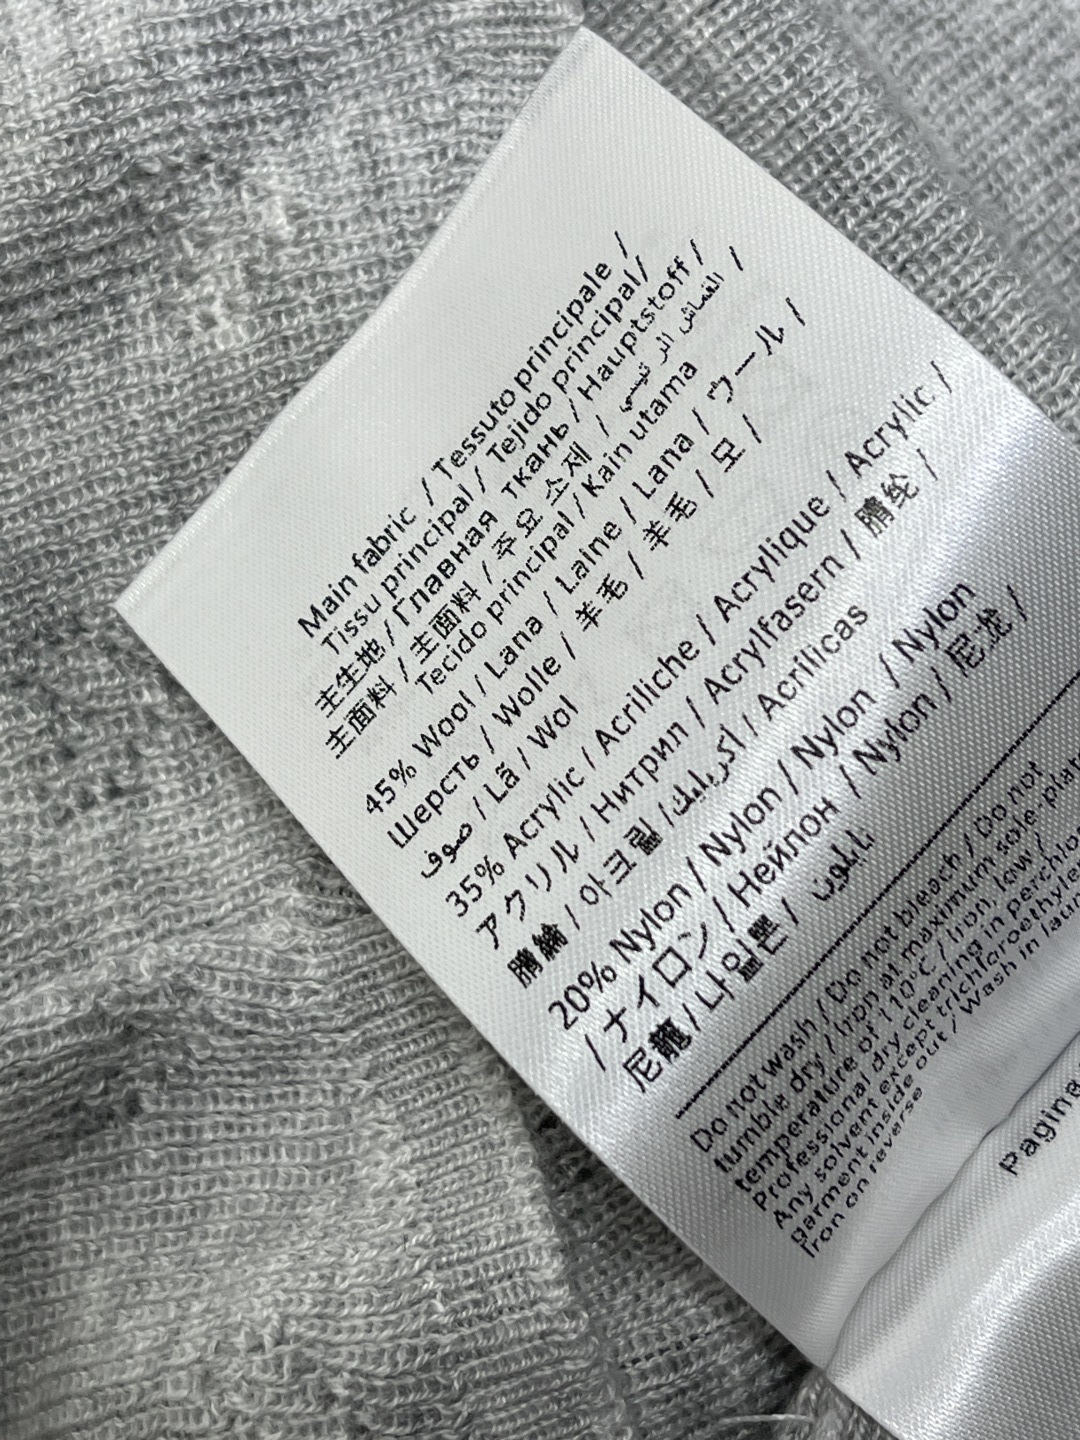 Main fabric / Tessuto principale /
Tissu principal / Tejido principal/
主生地/ Главная ткань / Hauptstoff /
主面料 / 主面料 / 주요 소제 /
Tecido principal / Kain utama
45% Wool / Lana / Laine / Lana / ウール /
Шерсть / Wolle / 羊毛 / 羊毛 / 모 /
صوف / Lã / Wol
35% Acrylic / Acriliche / Acrylique / Acrylic /
アクリル / Нитрил / Acrylfasern / 腈纶 /
아크릴 /اكريليك / Acrilicas
20% Nylon / Nylon / Nylon / Nylon
/ ナイロン / Нейлон / Nylon / 尼龙 /
尼龍 / 나일론 / نايلون
Do not wash / Do not bleach / Do not
tumble dry / Iron at maximum sole-plate
temperature of 110°C / Iron, low /
Professional dry cleaning in
Any solvent except trichloroethyle
garment inside out / Wash in
Iron on reverse
Pagina